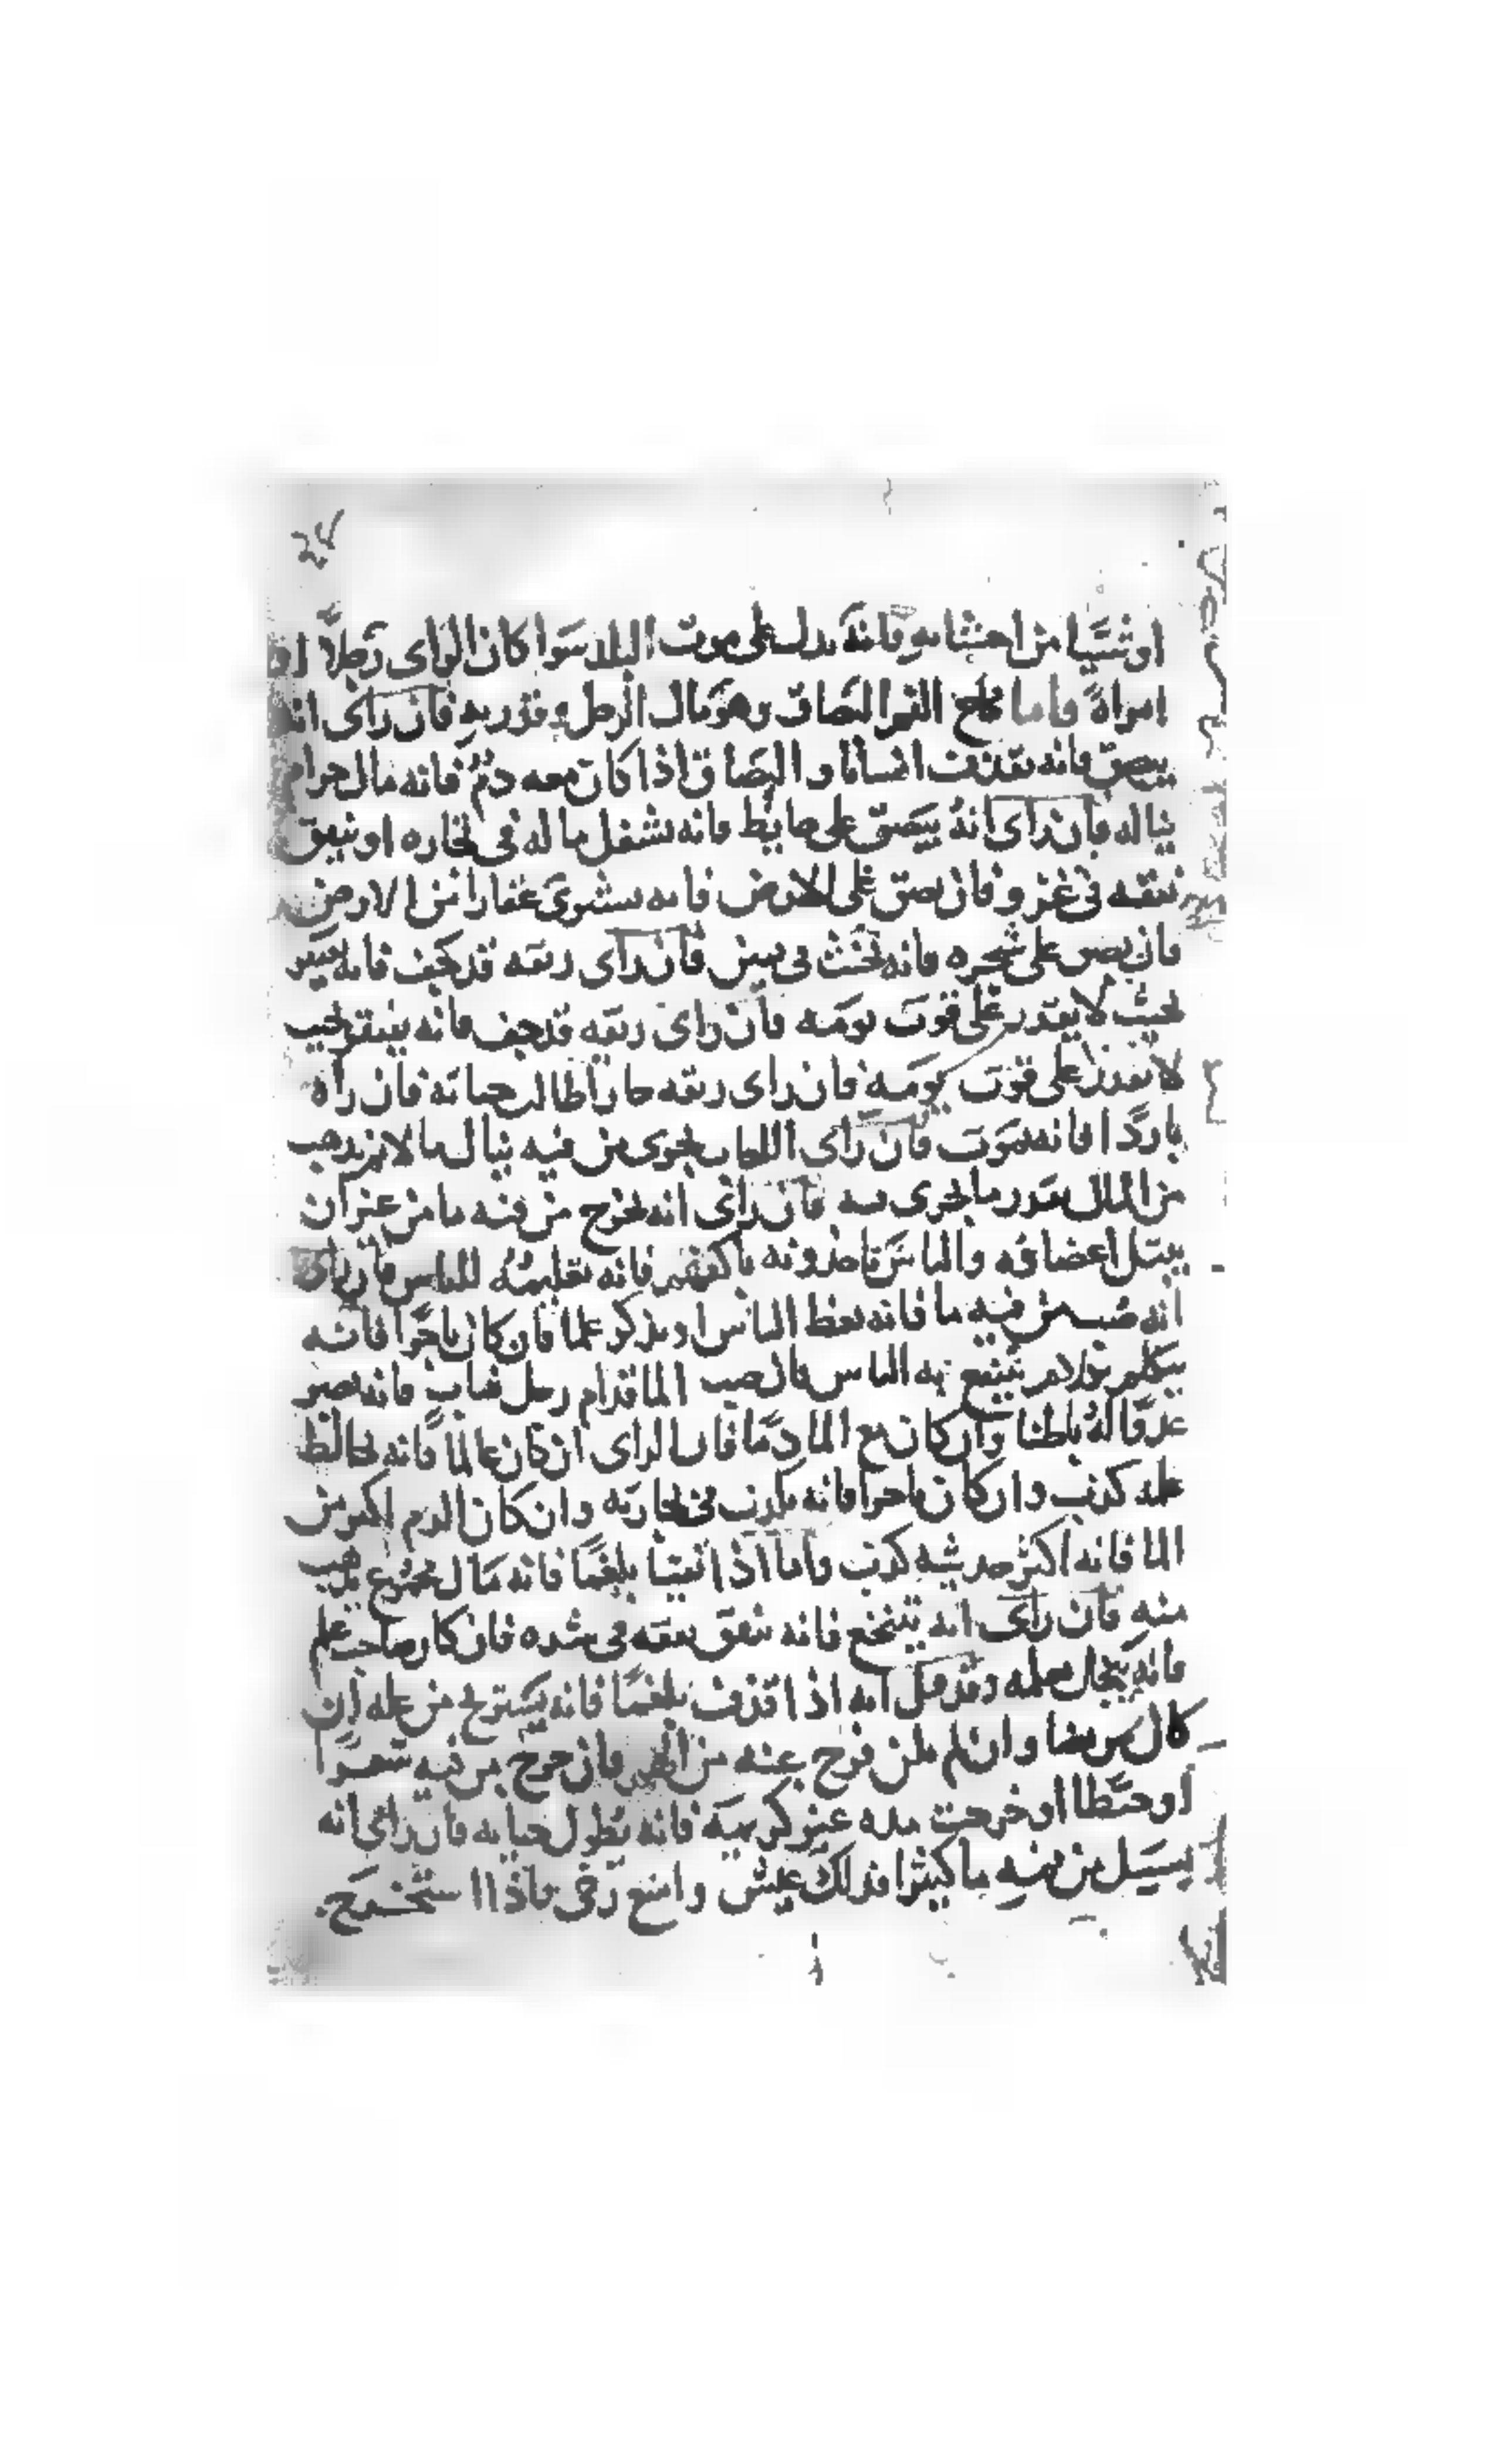 او شيا من احشايه فانه يدل على موت البلد سوا كان الراى رجلا او
امراة واما البصاق وهو مال الرجل وقدرته فان راى انه
يبصق فانه يقذف انسانا والبصاق اذا كان معه دم فانه مال حرام
يناله فان راى انه يبصق على حايط فانه يشغل ماله فى تجاره او ينفق
نفقه فى غزو فان بصق على الارض فانه يشترى عقارا من الارض
فان بصق على شجره فانه يحنث فى يمين فان راى ريقه قد جف فانه
بحيث لا يقدر على قوت يومه فان راى ريقه قد جف فانه يفتقر بحيث
لا يقدر على قوت يومه فان راى ريقه حارا طالت حياته فان راه
باردا فانه يموت فان راى اللعاب يجرى من فيه ينال مالا ثم يذهب
من المال بقدر ما يجرى منه فان راى انه يخرج من فمه ما من غير ان
يبتل اعضاوه والناس ياخذونه باكفهم فانه للناس فان راى
انه صب من فيه ما فانه يعظ الناس او يذكر علما فان كان تاجرا فانه
يتكلم بكلام ينتفع به الناس فان صب الما قدام رجل شاب فانه يصير
عدوا له باطنا وان كان مع الما دما فان الراى ان كان عالما فانه يخالط
علمه كذب وان كان تاجرا فانه يكذب فى تجارته وان كان الدم اكثر من
الما فانه اكثر حديثه كذب واما اذا بلغما فانه مال مجموع يذهب
منه فان راى انه يتنخع فانه ينفق نفقه فى شده فان كان صاحب علم
فانه يبخل بعلمه وقد قيل انه اذا قذف بلغما فانه يستريح من عله ان
كان مريضا وان لم يكن فرج عنه من الهم فان خرج من فيه شعرا
او خيطا او خرجت مده غير كريهه فانه يطول حياته فان راى انه
يسيل من فيه ما كثيرا فذلك عيش واسع رخى فاذا استخرج